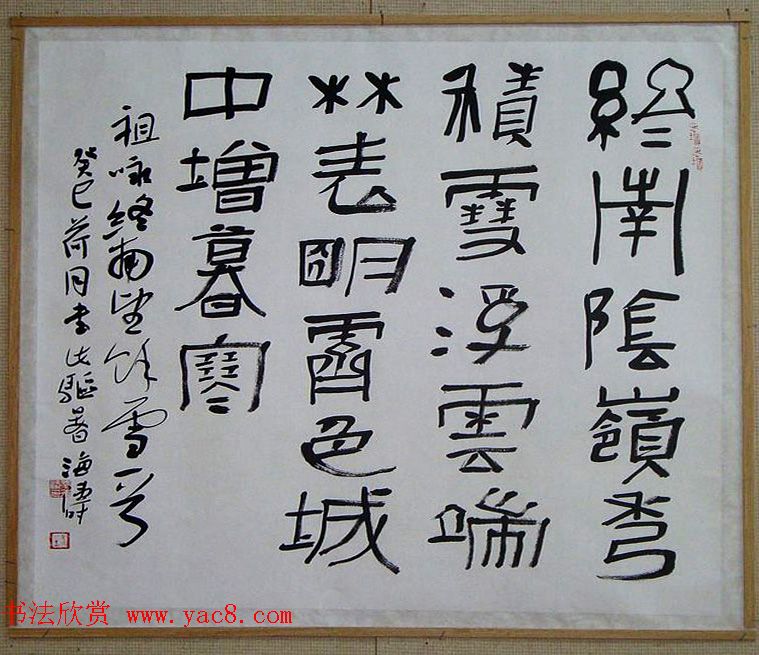 終南陰嶺秀
積雪浮雲端
林表明霽色城
中增暮寒
祖咏終南望餘雪一首
癸巳荷月書以驅暑海濤
书法欣赏 www.yac8.com